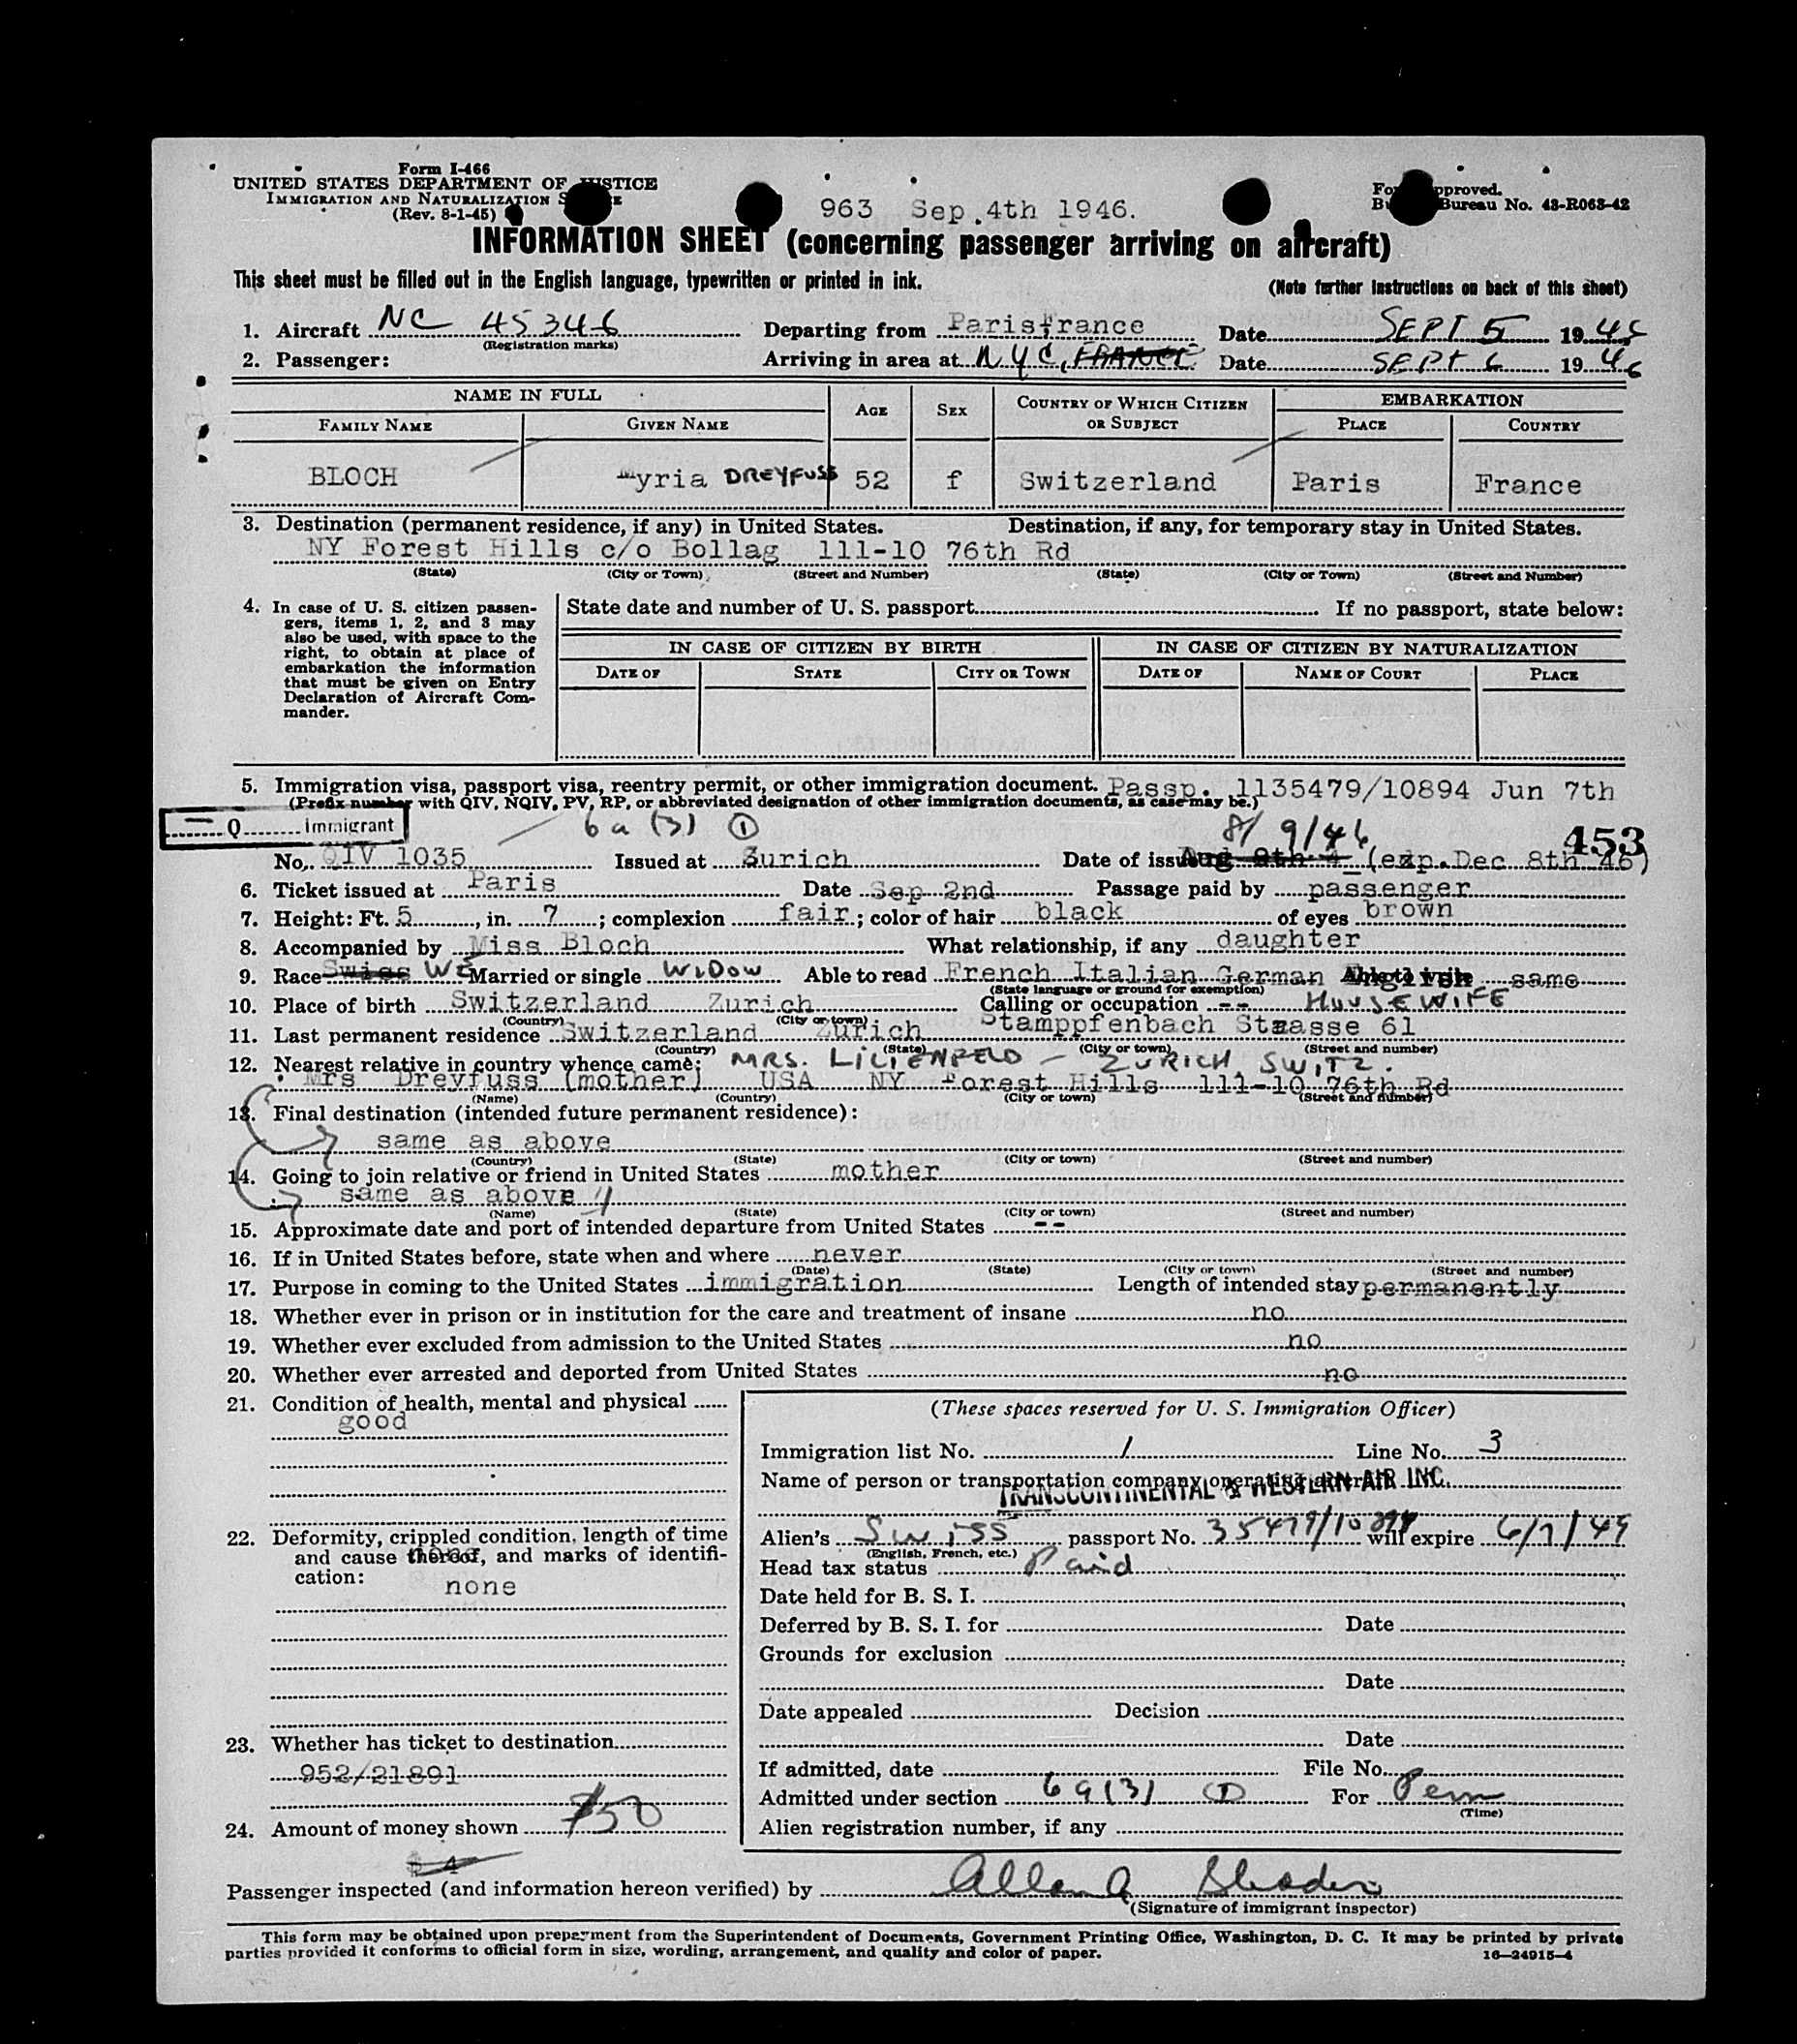 Form I-466
UNITED STATES DEPARTMENT OF JUSTICE
IMMIGRATION AND NATURALIZATION S
(Rev. 8-1-45)
963 Sep.4th 1946.
Fo pproved.
B Bureau No. 43-R063-42
INFORMATION SHEET (concerning passenger arriving on aircraft)
This sheet must be filled out in the English language, typewritten or printed in ink.
(Note further instructions on back of this sheet)
1. Aircraft NC 45346 Departing from Paris,france Date SEPT 5 1946
(Registration marks)
2. Passenger: Arriving in area at NYC, FRANCE Date SEPT 6 1946
NAME IN FULL AGE SEX COUNTRY OF WHICH CITIZEN OR SUBJECT EMBARKATION
FAMILY NAME GIVEN NAME PLACE COUNTRY
BLOCH Myria DREYFUSS 52 f Switzerland Paris France
3. Destination (permanent residence, if any) in United States. Destination, if any, for temporary stay in United States.
NY Forest Hills c/o Bollag 111-10 76th Rd
(State) (City or Town) (Street and Number) (State) (City or Town) (Street and Number)
4. In case of U. S. citizen passen-
gers, items 1, 2, and 3 may
also be used, with space to the
right, to obtain at place of
embarkation the information
that must be given on Entry
Declaration of Aircraft Com-
mander.
State date and number of U. S. passport If no passport, state below:
IN CASE OF CITIZEN BY BIRTH IN CASE OF CITIZEN BY NATURALIZATION
DATE OF STATE CITY OR TOWN DATE OF NAME OF COURT PLACE
5. Immigration visa, passport visa, reentry permit, or other immigration document. Passp. 1135479/10894 Jun 7th
(Prefix number with QIV, NQIV, PV, RP, or abbreviated designation of other immigration documents, as case may be.)
Q Immigrant
6a (3) 1 8/9/46 453
No. QIV 1035 Issued at Zurich Date of issue Aug 8th 4 (exp.Dec 8th 46)
6. Ticket issued at Paris Date Sep 2nd Passage paid by passenger
7. Height: Ft. 5, in. 7; complexion fair; color of hair black of eyes brown
8. Accompanied by Miss Bloch What relationship, if any daughter
9. Race Swiss WE Married or single WIDOW Able to read French Italian German English Able to write same
(State language or ground for exemption)
10. Place of birth Switzerland Zurich Calling or occupation -- HOUSEWIFE
(Country) (City or town)
11. Last permanent residence Switzerland Zurich Stamppfenbach Strasse 61
(Country) (State) (City or town) (Street and number)
12. Nearest relative in country whence came: MRS. LILIENFELD - ZURICH, SWITZ.
Mrs Dreyfuss (mother) USA NY Forest Hills 111-10 76th Rd
(Name) (Country) (City or town) (Street and number)
13. Final destination (intended future permanent residence):
same as above
(Country) (State) (City or town) (Street and number)
14. Going to join relative or friend in United States mother
same as above
(Name) (State) (City or town) (Street and number)
15. Approximate date and port of intended departure from United States --
16. If in United States before, state when and where never
(Date) (State) (City or town) (Street and number)
17. Purpose in coming to the United States immigration Length of intended stay permanently
18. Whether ever in prison or in institution for the care and treatment of insane no
19. Whether ever excluded from admission to the United States no
20. Whether ever arrested and deported from United States no
21. Condition of health, mental and physical
good
22. Deformity, crippled condition, length of time
and cause thereof, and marks of identifi-
cation:
none
23. Whether has ticket to destination
952/21891
24. Amount of money shown $50
$ 4
(These spaces reserved for U. S. Immigration Officer)
Immigration list No. 1 Line No. 3
Name of person or transportation company operating aircraft
TRANSCONTINENTAL & WESTERN AIR INC.
Alien's Swiss passport No. 35479/10894 will expire 6/7/49
(English, French, etc.)
Head tax status Paid
Date held for B. S. I.
Deferred by B. S. I. for Date
Grounds for exclusion
Date
Date appealed Decision
Date
If admitted, date File No.
Admitted under section 6a(3) 1 For Perm
(Time)
Alien registration number, if any
Passenger inspected (and information hereon verified) by Allen A
(Signature of immigrant inspector)
This form may be obtained upon prepayment from the Superintendent of Documents, Government Printing Office, Washington, D. C. It may be printed by private
parties provided it conforms to official form in size, wording, arrangement, and quality and color of paper. 16—24915-4